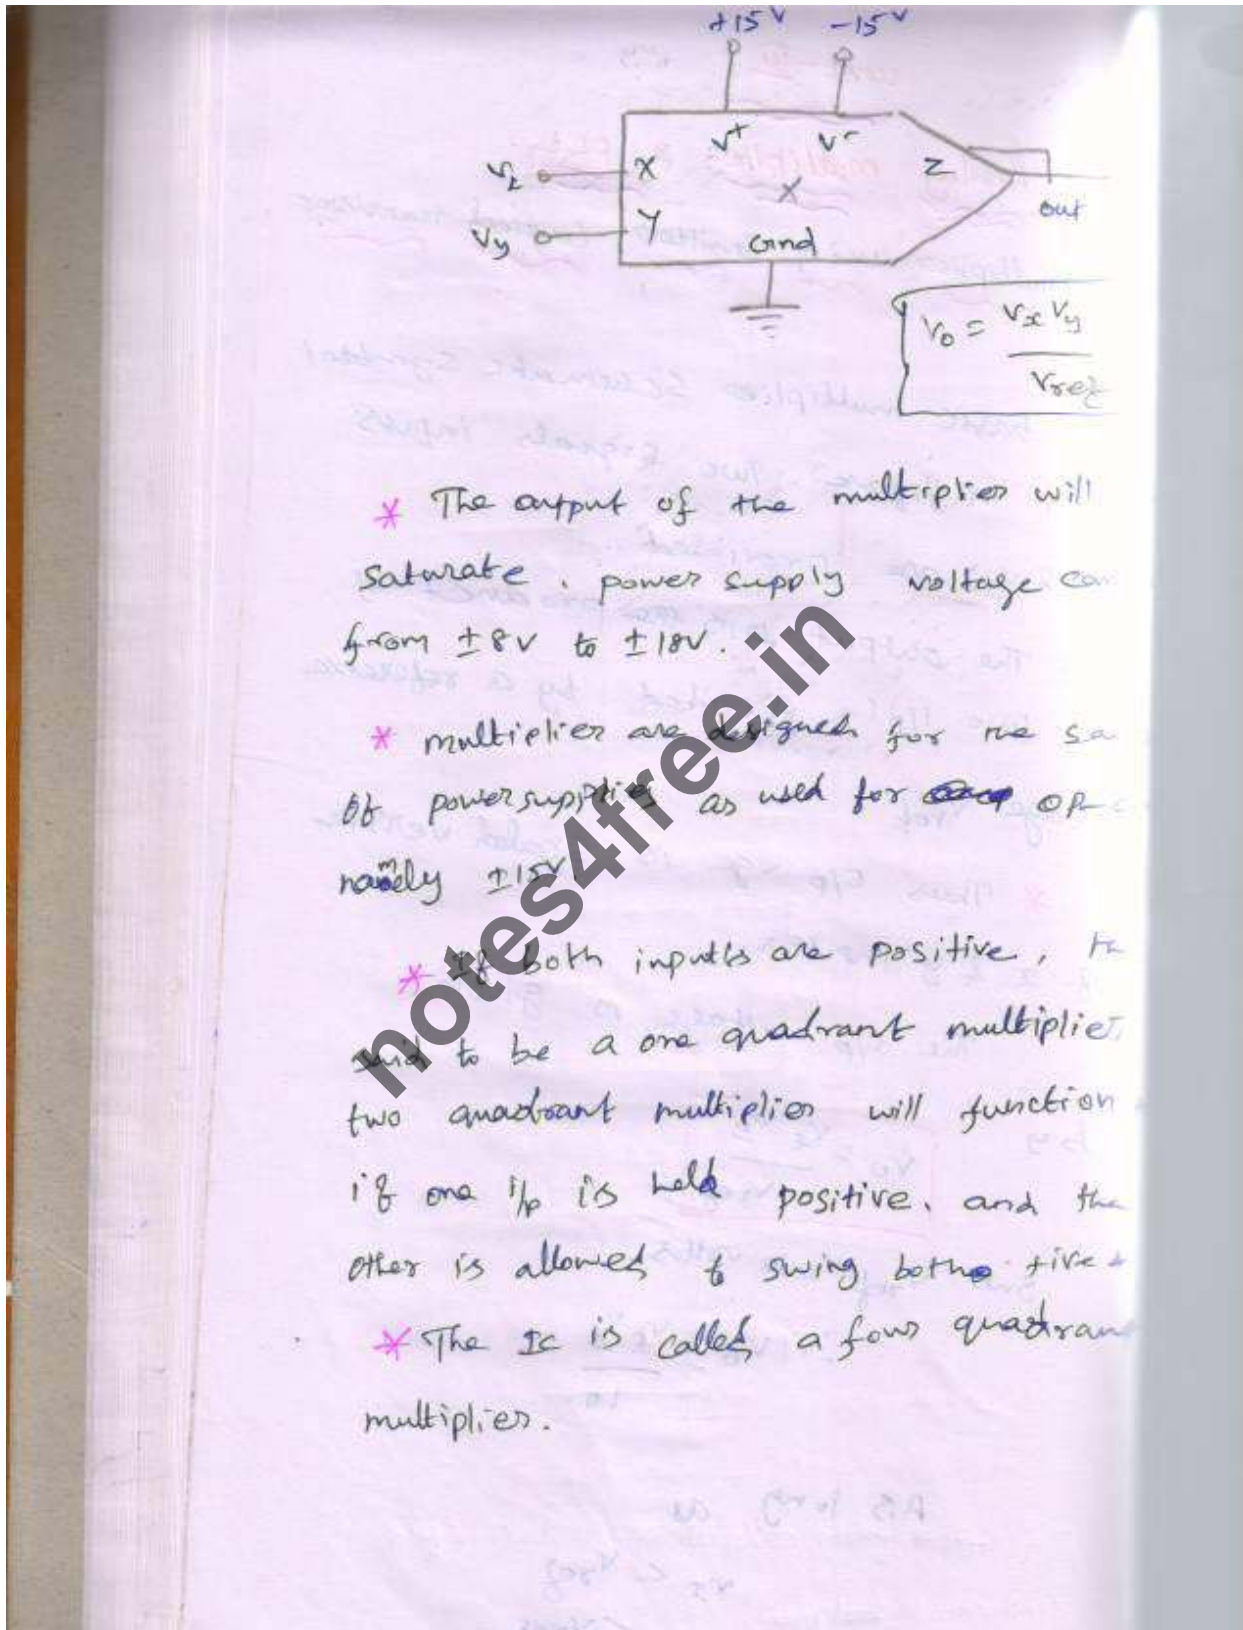 +15V -15V
V+ V-
Vx X X Z
Vy Y Gnd out
Vo = Vx Vy
Vref
* The output of the multiplier will
saturate. power supply voltage can
from ±8V to ±18V.
* multiplier are designed for the sa
of powersupplies as used for op-
namely ±15V.
* If both inputs are positive, th
said to be a one quadrant multiplier
two quadrant multiplier will function
if one i/p is held positive. and the
other is allowed to swing both tive
* The IC is called a four quadran
multiplier.
notes4free.in